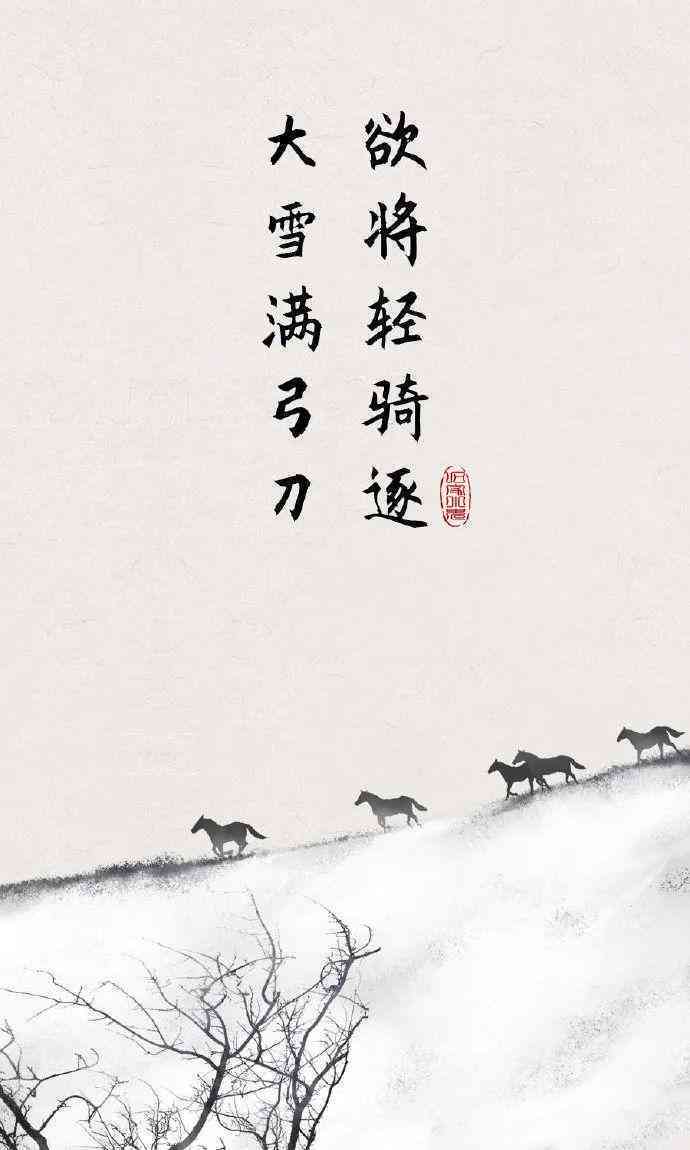 欲将轻骑逐
大雪满弓刀